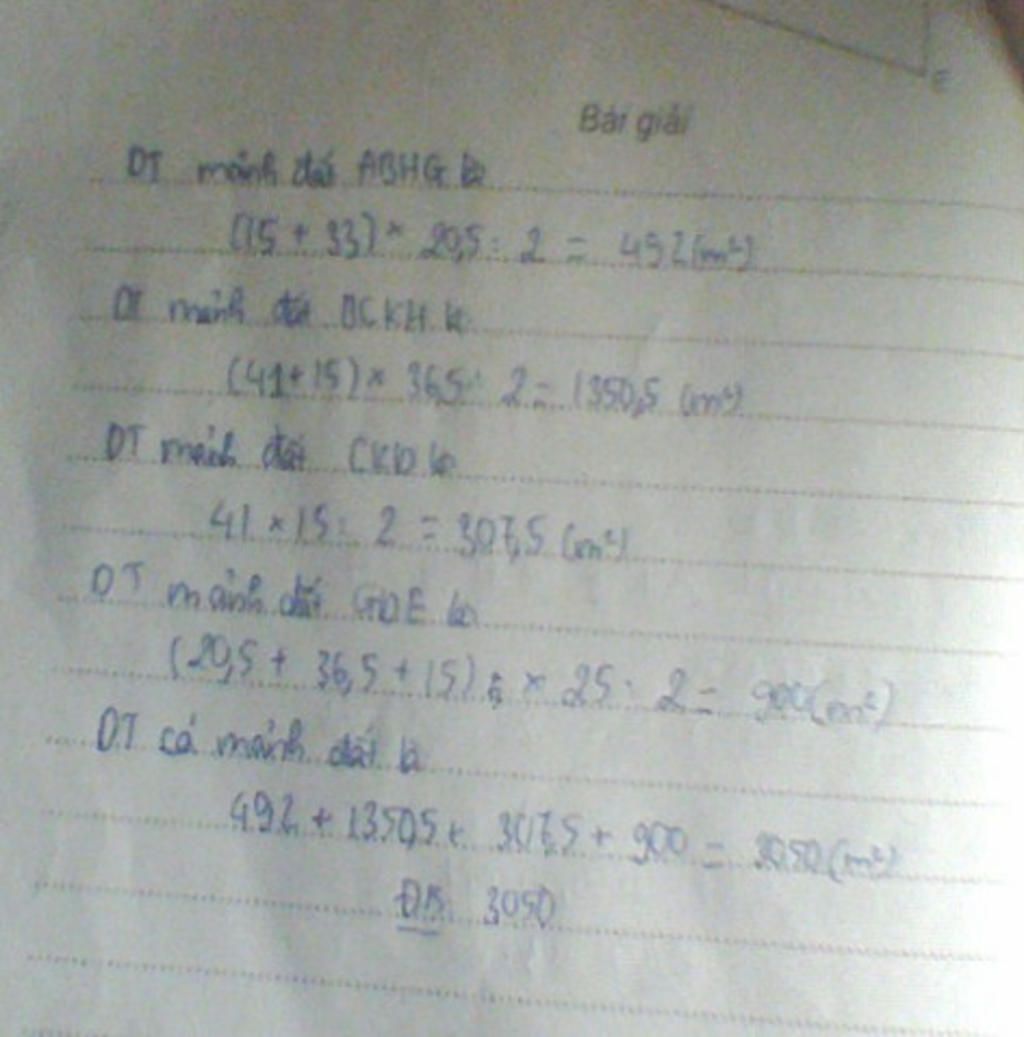 E
Bài giải
DT mảnh đất ABHG là
(15 + 33) × 20,5 : 2 = 492 (m²)
DT mảnh đất BCKH là
(41 + 15) × 36,5 : 2 = 1350,5 (m²)
DT mảnh đất CKD là
41 × 15 : 2 = 307,5 (m²)
DT mảnh đất GDE là
(20,5 + 36,5 + 15) × 25 : 2 = 900 (m²)
DT cả mảnh đất là
492 + 1350,5 + 307,5 + 900 = 3050 (m²)
ĐS: 3050